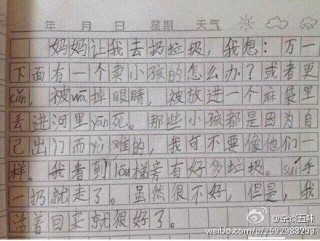 年 月 日 星期 天气
妈妈让我去扔垃圾，我想：万一
下面有一个卖小孩的怎么办？或者更
cǎn，被wā掉眼睛，被放进一个麻袋里
丢进河里yān死。那些小孩都是因为自
己出门而yù难的，我可不要像他们一
样。我看到lóu梯旁有好多垃圾。suí手
一扔就走了。虽然很不好，但是，我
活着回来就很好了。
weibo.com/2592988203